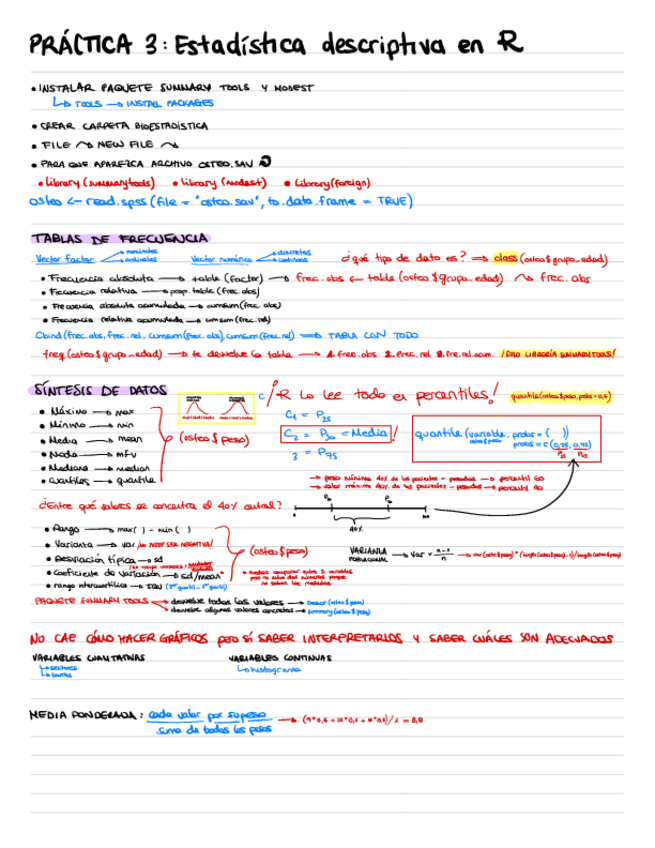 PRÁCTICA 3: Estadística descriptiva en R
• INSTALAR PAQUETE SUMMARY TOOLS Y MODEST
↳ TOOLS → INSTALL PACKAGES
• CREAR CARPETA BIOESTADÍSTICA
• FILE → NEW FILE →
• PARA QUE APAREZCA ARCHIVO OSTEO.SAV
• Library(summarytools) • Library(modest) • Library(foreign)
osteo <- read.spss(file = "osteo.sav", to.data.frame = TRUE)
TABLAS DE FRECUENCIA
Vector factor nominales ordinales Vector numérico discretos continuos ¿qué tipo de dato es? ⇒ class(osteo$grupo_edad)
• Frecuencia absoluta → table(factor) → frec.abs <- table(osteo$grupo_edad) → frec.abs
• Frecuencia relativa → prop.table(frec.abs)
• Frecuencia absoluta acumulada → cumsum(frec.abs)
• Frecuencia relativa acumulada → cumsum(frec.rel)
Cbind(frec.abs, frec.rel, cumsum(frec.abs), cumsum(frec.rel) ⇒ TABLA CON TODO
freq(osteo$grupo_edad) → te devuelve la tabla → 1. frec.abs 2. frec.rel 3. fre.rel.acum. ¡SOLO LIBRERÍA SUMMARYTOOLS!
SÍNTESIS DE DATOS
¡R lo lee todo en percentiles! quantile(osteo$peso, probs=0,5)
• Máximo → max
• Mínimo → min
• Media → mean
• Moda → mfv
• Mediana → median
• Cuantiles → quantile
(osteo$peso)
C₁ = P₂₅
C₂ = P₅₀ = Media!
3 = P₇₅
quantile(variable, probs = ( ))
osteo$peso probs = c(0,25, 0,75)
P₂₅ P₇₅
→ peso mínimo 40% de los pacientes + pesados → percentil 60
→ valor máximo 40% de los pacientes - pesados → percentil 40
¿Entre qué valores se concentra el 40% central?
40%
• Rango → max( ) - min( )
• Varianza → var ¡NO PUEDE SER NEGATIVA!
• Desviación típica → sd
• Coeficiente de variación → sd/mean
• rango intercuartílico → IQR
(osteo$peso)
VARIANZA POBLACIONAL → var × n-1/n → var(osteo$peso)*(length(osteo$peso)-1)/length(osteo$peso)
PAQUETE SUMMARY TOOLS devuelve todos los valores → descr(osteo$peso)
devuelve algunos valores concretos → summary(osteo$peso)
NO CAE CÓMO HACER GRÁFICOS pero sí SABER INTERPRETARLOS Y SABER CUÁLES SON ADECUADOS
VARIABLES CUALITATIVAS VARIABLES CONTINUAS
↳ sectores ↳ histograma
↳ barras
MEDIA PONDERADA: cada valor por su peso
suma de todos los pesos